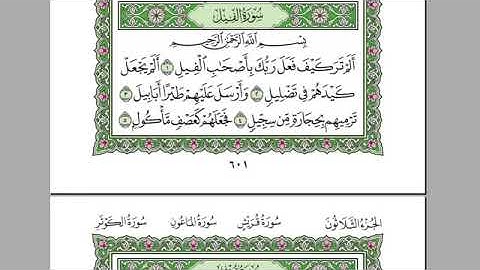 سُورَةُ الفِيلِ
بِسْمِ اللَّهِ الرَّحْمَٰنِ الرَّحِيمِ
أَلَمْ تَرَ كَيْفَ فَعَلَ رَبُّكَ بِأَصْحَابِ الْفِيلِ ١ أَلَمْ يَجْعَلْ
كَيْدَهُمْ فِي تَضْلِيلٍ ٢ وَأَرْسَلَ عَلَيْهِمْ طَيْرًا أَبَابِيلَ ٣
تَرْمِيهِم بِحِجَارَةٍ مِّن سِجِّيلٍ ٤ فَجَعَلَهُمْ كَعَصْفٍ مَّأْكُولٍ ٥
٦٠١
الجُزءُ الثَّلَاثُونَ سُورَةُ قُرَيْشٍ سُورَةُ المَاعُونِ سُورَةُ الكَوْثَرِ